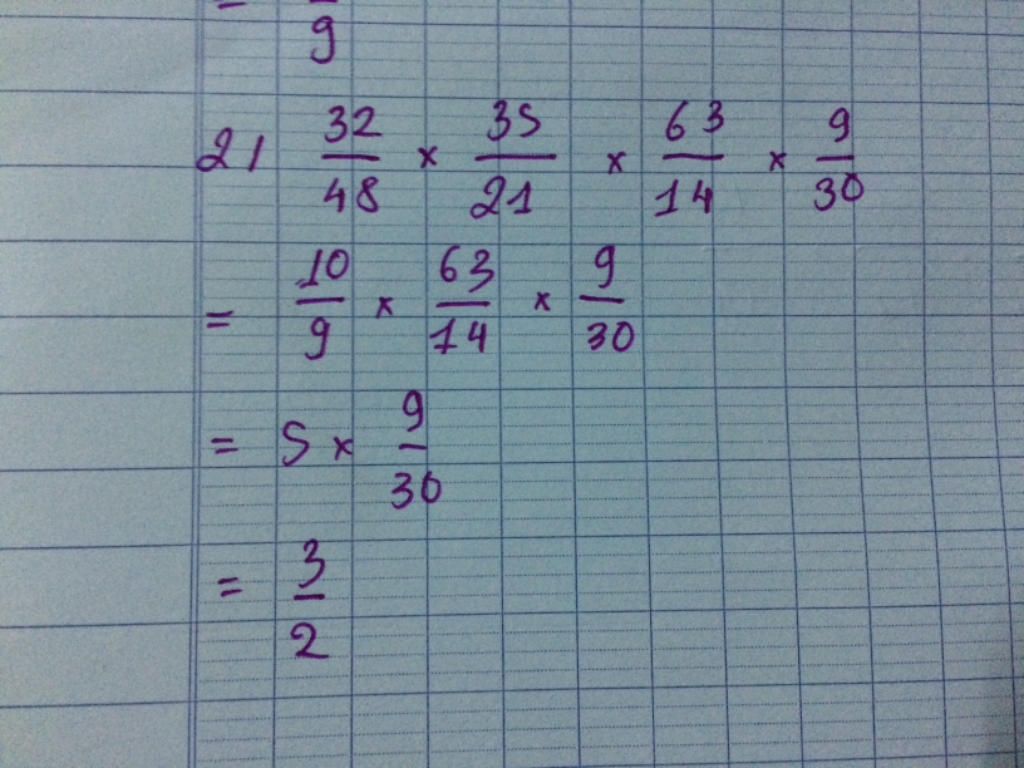 = 
9
21 32/48 × 35/21 × 63/14 × 9/30
= 10/9 × 63/14 × 9/30
= 5 × 9/30
= 3/2